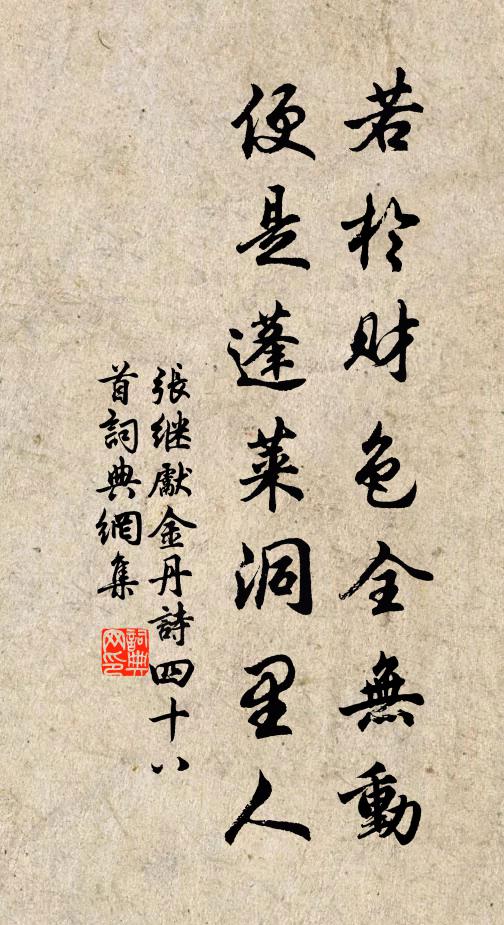 若於財色全無動
便是蓬萊洞里人
張继獻金丹詩四十八
首詞典網集
詞典
网印